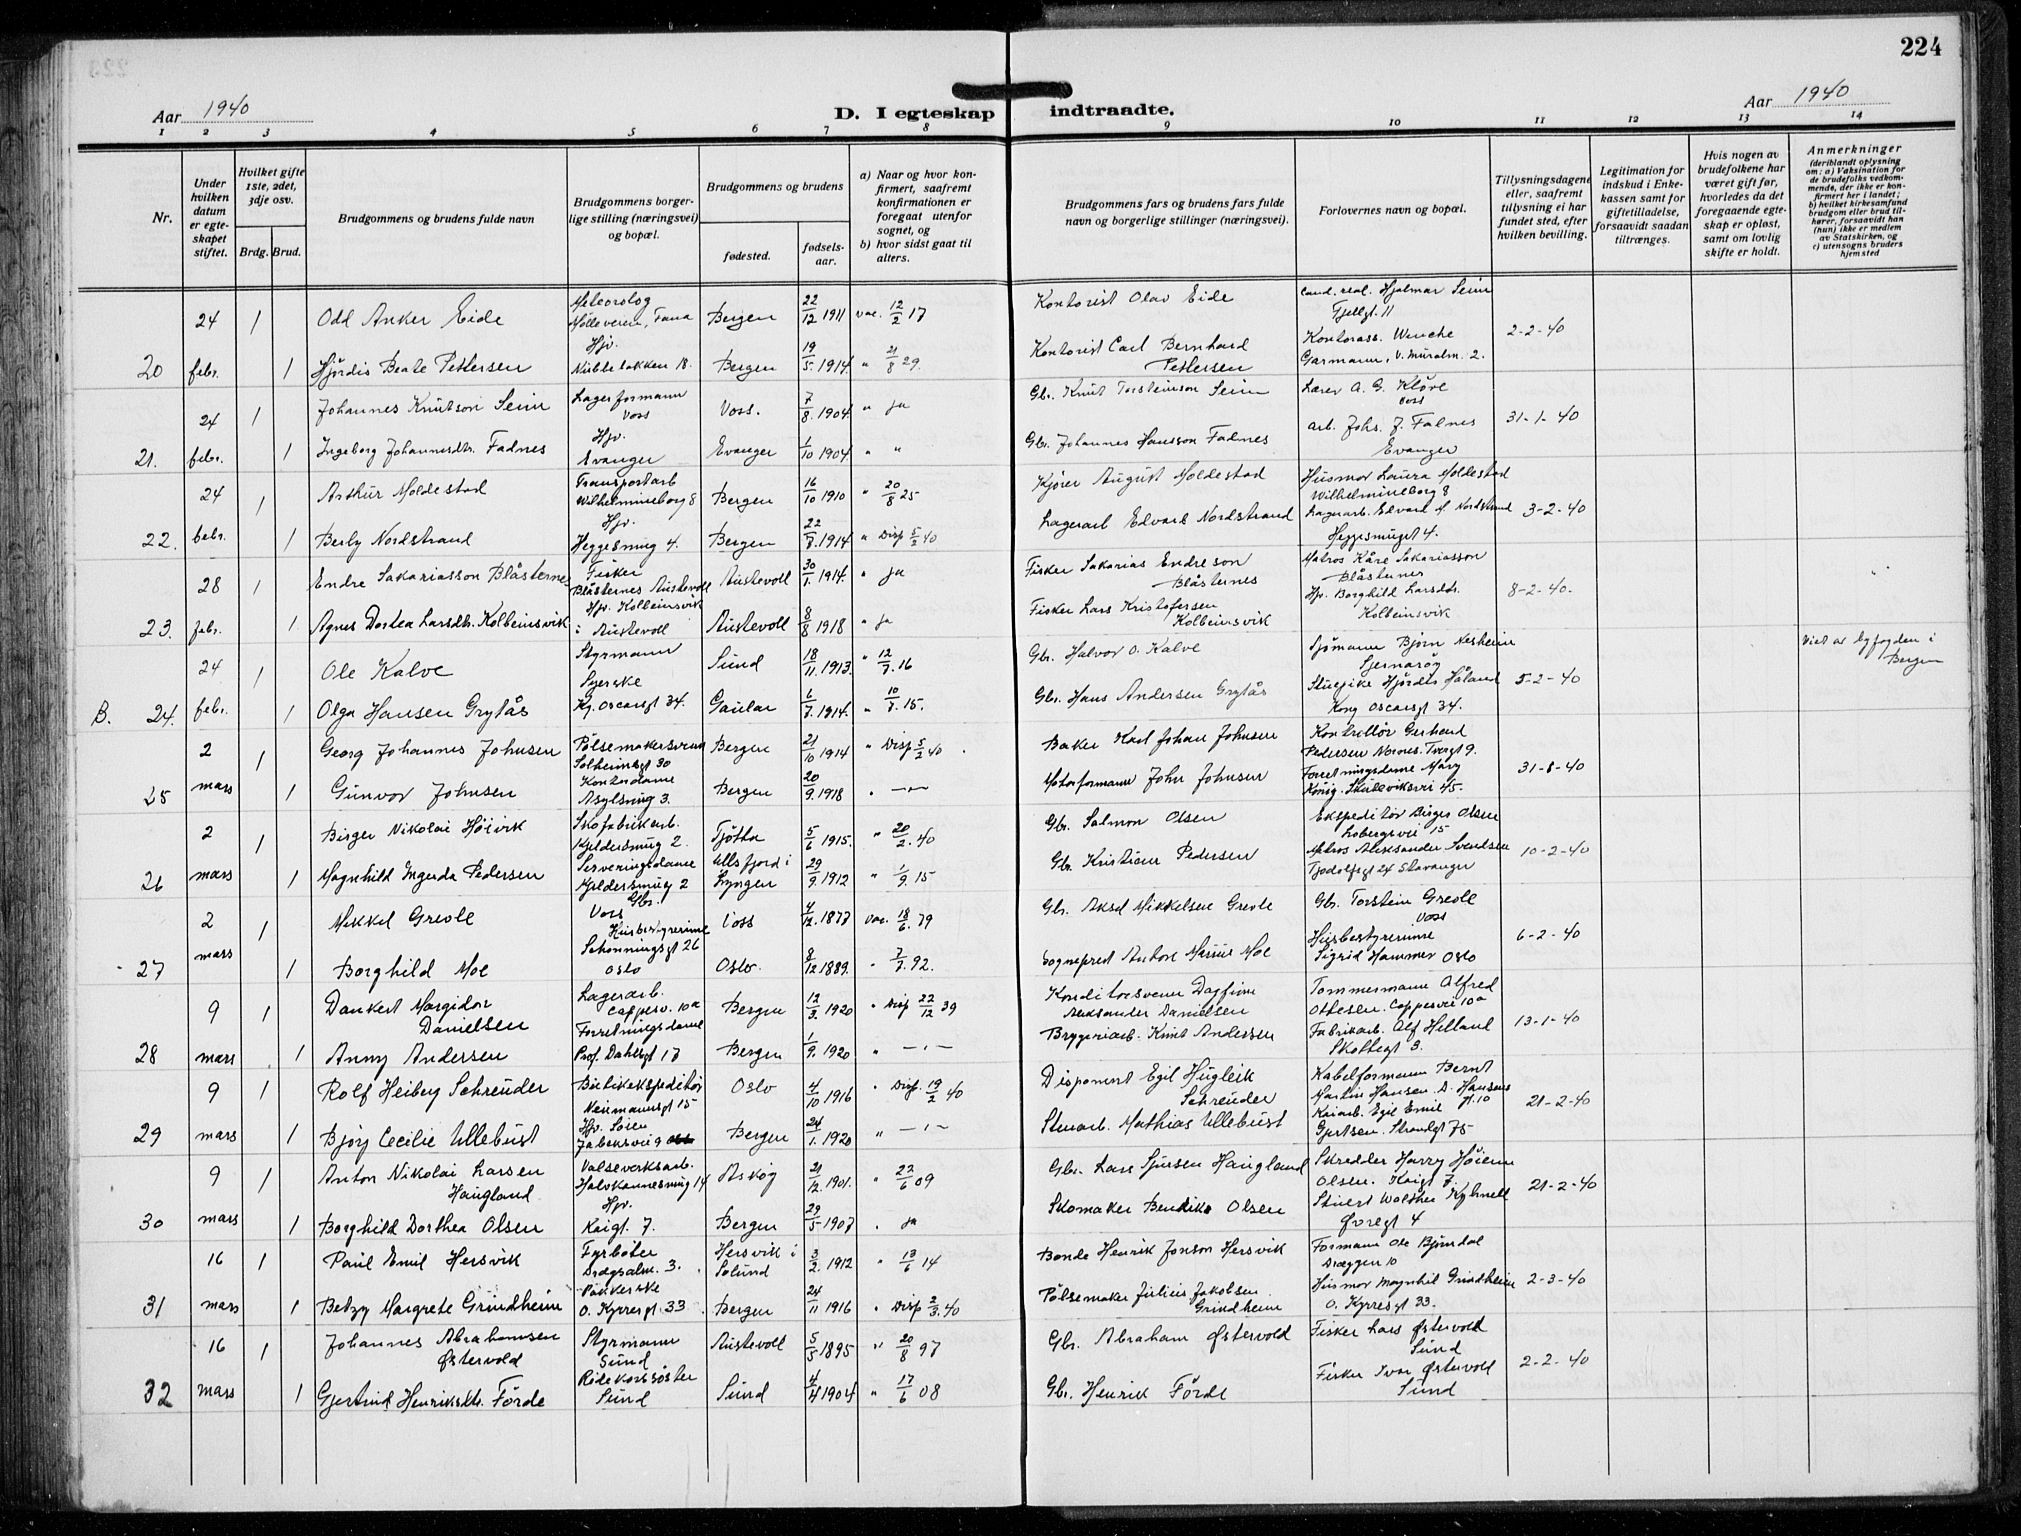 224
Aar 1940
D. I egteskap indtraadte.
Aar 1940
1 2 3 4 5 6 7 8 9 10 11 12 13 14
Nr.
Under hvilken datum er egteskapet stiftet.
Hvilket gifte 1ste, 2det, 3dje osv.
Brdg. Brud.
Brudgommens og brudens fulde navn
Brudgommens borgerlige stilling (næringsvei) og bopæl.
Brudgommens og brudens
fødested.
fødselsaar.
a) Naar og hvor konfirmert, saafremt konfirmationen er foregaat utenfor sognet, og
b) hvor sidst gaat til alters.
Brudgommens fars og brudens fars fulde navn og borgerlige stillinger (næringsvei).
Forlovernes navn og bopæl.
Tillysningsdagene eller, saafremt tillysning ei har fundet sted, efter hvilken bevilling.
Legitimation for indskud i Enkekassen samt for giftetilladelse, forsaavidt saadan tiltrænges.
Hvis nogen av brudefolkene har været gift før, hvorledes da det foregaaende egteskap er opløst, samt om lovlig skifte er holdt.
Anmerkninger (deriblandt oplysning om: a) Vaksination for de brudefolks vedkommende, der ikke er konfirmert her i landet; b) hvilket kirkesamfund brudgom eller brud tilhører, forsaavidt han (hun) ikke er medlem av Statskirken, og c) utensogns bruders hjemsted
24 1 Odd Anker Eide Meteorolog Mølleveien, Fana Bergen 22/12 1911 vac. 12/2 17 Kontorist Olav Eide Cand. real. Hjalmar Seim Fjellgt. 11
20 febr. 1 Hjørdis Beate Pettersen Hjv. Nubbebakken 18. Bergen 19/5 1914. " 21/8 29. Kontorist Carl Bernhard Pettersen Kontorass. Wenche Garmann, v. Muralm. 2. 2-2-40
24 1 Johannes Knutson Seim Lagerformann Voss Voss. 7/8 1904 " ja Gbr. Knut Torsteinson Seim Lærer A. G. Kløve Voss
21. febr. 1 Ingeborg Johannesdtr. Fadnes Hjv. Evanger Evanger 1/10 1904 " " Gbr. Johannes Hansson Fadnes arb. Johs. J. Fadnes Evanger 31-1-40
24 1 Arthur Moldestad Transportarb Wilhelmineborg 8 Bergen 16/10 1910 " 20/8 25 Kjører August Moldestad Husmor Laura Moldestad Wilhelmineborg 8
22. febr. 1 Berly Nordstrand Hjv. Heggesmug 4. Bergen 22/7 1914 " Disp 5/2 40 Lagerarb Edvard Nordstrand Lagerarb. Edvard Nordstrand Heggesmuget 4. 3-2-40
28 1 Endre Sakariasson Blåsternes Fisker Blåsternes Austevoll Austevoll 30/1 1914. " ja Fisker Sakarias Endreson Blåsternes Matros Kåre Sakariasson Blåsternes
23. febr. 1 Agnes Dortea Larsdtr. Kolbeinsvik Hjv. Kolbeinsvik i Austevoll Austevoll 8/8 1918 " ja Fisker Lars Kristofersen Kolbeinsvik Hjv. Borghild Larsdtr. Kolbeinsvik 8-2-40.
24 1 Ole Kalve Styrmann Sund 18/11 1913. " 12/7. 16 Gbr. Halvor O. Kalve Sjømann Bjørn Nesheim Sjernarøy Viet av byfogden i Bergen
B. 24. febr. 1 Olga Hansen Grytås Syerske Kg. Oscarsgt 34. Gaular 1/7 1914. " 10/7. 15. Gbr. Hans Andersen Grytås Stuepike Hjørdis Håland Kong Oscarsgt 34. 5-2-40
2 1 Georg Johannes Johnsen Pølsemakersvend Solheimsgt 30 Bergen 21/10 1914 " Disp 5/2 40 Baker Karl Johan Johnsen Kontrollør Gerhard Pedersen Nornes. Tvergt 9.
25 mars 1 Gunvor Johnsen Kontordame Asylsmug 3. Bergen 20/9. 1918 " — Motorformann John Johnsen Forretningsdame Mary König. Skuteviksvei 45. 31-8-40
2 1 Birger Nikolai Høivik Skofabrikarb. Kjeldersmug 2. Tjøtta 5/6 1915. " 20/2. 40 Gbr. Salmon Olsen Ekspeditør Birger Olsen Lobergsvei 15
26 mars 1 Magnhild Ingerda Pedersen Serveringsdame Kjeldersmug 2 Ullsfjord i Lyngen 29/9. 1912 " 1/9. 15 Gbr. Kristian Pedersen Matros Aleksander Svendsen Tjodolfsgt 24 Stavanger 10-2-40
2 1 Mikkel Greole Gbr. Voss Voss 4/12. 1877 vac. 18/6. 79 Gbr. Aksd Mikkelsen Greole Gbr. Torstein Greole Voss
27 mars 1 Borghild Moe Husbestyrerinne Schønningsgt 26 Oslo Oslo. 8/12 1889. " 7/7. 92. Sogneprest Anton Marius Moe Husbestyrerinne Sigrid Hammer Oslo 6-2-40
9 1 Dankert Margidor Danielsen Lagerarb. Cappesv. 10a Bergen 12/3. 1920 " Disp 22/12 39 Konditorsvenn Dagfinn Aleksander Danielsen Tommermann Alfred Ottesen. Cappesvei 10a
28 mars 1 Anny Andersen Forretningsdame Prof. Dahlsgt 17 Bergen 1/9. 1920 " — Bryggeriarb. Knut Andersen Fabrikarb. Alf Helland Skottegt 3. 13-1-40
9 1 Rolf Heiberg Schreuder Butikekspeditør Neumannsgt 15 Oslo 4/10 1916 " Disp. 19/2 40 Disponent Egil Hugleik Schreuder Kabelformann Bernt Martin Hansen. D. Hansens pl. 10
29 mars 1 Bjørg Cecilie Ullebust Hjv. Søren Jabensvei 9 Bergen 24/1. 1920 " — Stuerarb. Mathias Ullebust Kaiarb. Egil Emil Gjertsen. Strandgt 75 21-2-40
9 1 Anton Nikolai Larsen Haugland Valseverksarb. Halvkannesmug 14 Askøy 21/12. 1901. " 22/6 09 Gbr. Lars Sjursen Haugland Skredder Harry Høiem Olsen. Kaigt 7
30 mars 1 Borghild Dorthea Olsen Hjv. Kaigt. 7. Bergen 29/5 1907 " ja Skomaker Bendiks Olsen Stuert Walther Øvregt 4 21-2-40
16 1 Paul Emil Hersvik Fyrbøter Dregsalm. 3. Hersvik i Solund 3/2. 1912 " 13/6 14 Bonde Henrik Jonson Hersvik Formann Ole Bjørndal Dræggen 10
31 mars 1 Betzy Margrete Grindheim Pakkerske O. Kyrresgt 33. Bergen 24/11 1916 " Disp 2/3. 40 Pølsemaker Julius Jakobsen Grindheim Husmor Magnhil Grindheim O. Kyrresgt 33. 2-3-40
16 1 Johannes Abrahamsen Østervold Styrmann Sund Austevoll 5/5 1895 " 20/8 97 Gbr. Abraham Østervold Fisker Lars Østervold Sund
32 mars 1 Gjertrud Henriksdtr. Förde Rødekorssøster Sund Sund 4/4 1904 " 17/6 08 Gbr. Henrik Förde Fisker Ivar Østervold Sund 2-2-40